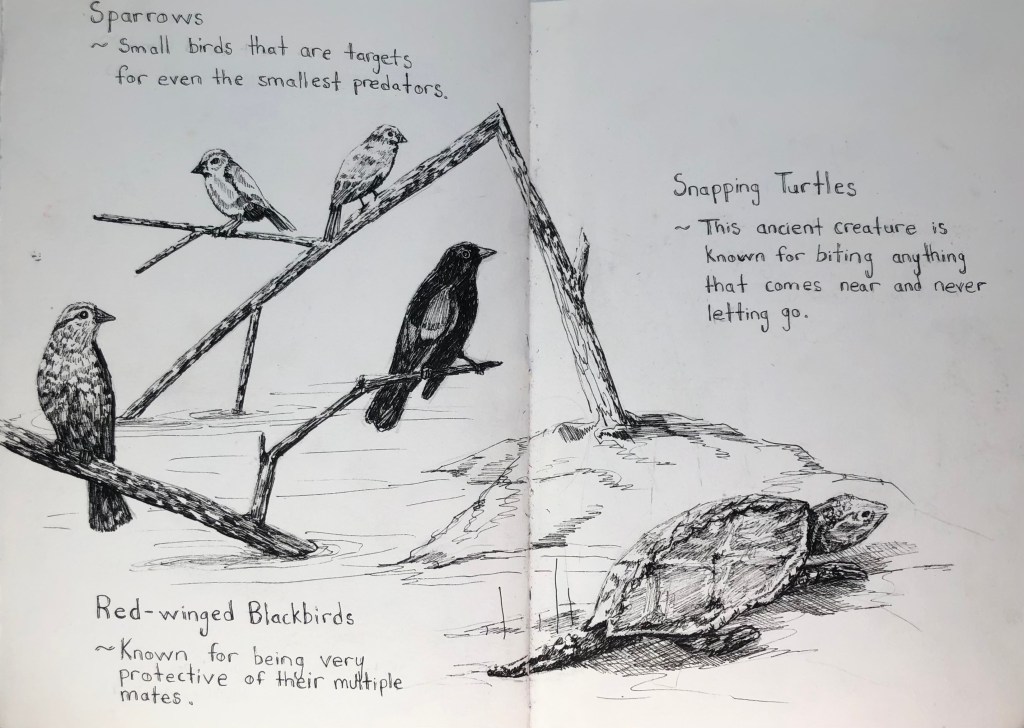 Sparrows
~ Small birds that are targets
for even the smallest predators.
Snapping Turtles
~ This ancient creature is
known for biting anything
that comes near and never
letting go.
Red-winged Blackbirds
~ Known for being very
protective of their multiple
mates.